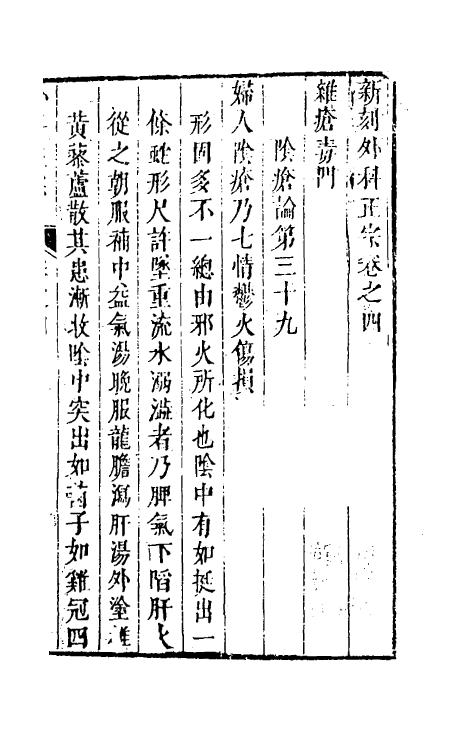 新刻外科正宗卷之四
雜瘡毒門
陰瘡論第三十九
婦人陰瘡乃七情鬱火傷損
形固多不一總由邪火所化也陰中有如挺出一
條蛇形尺許墜重流水溺澁者乃脾氣下陷肝火
從之朝服補中益氣湯晚服龍膽瀉肝湯外塗雄
黃藜蘆散其患漸收陰中突出如菌子如雞冠四